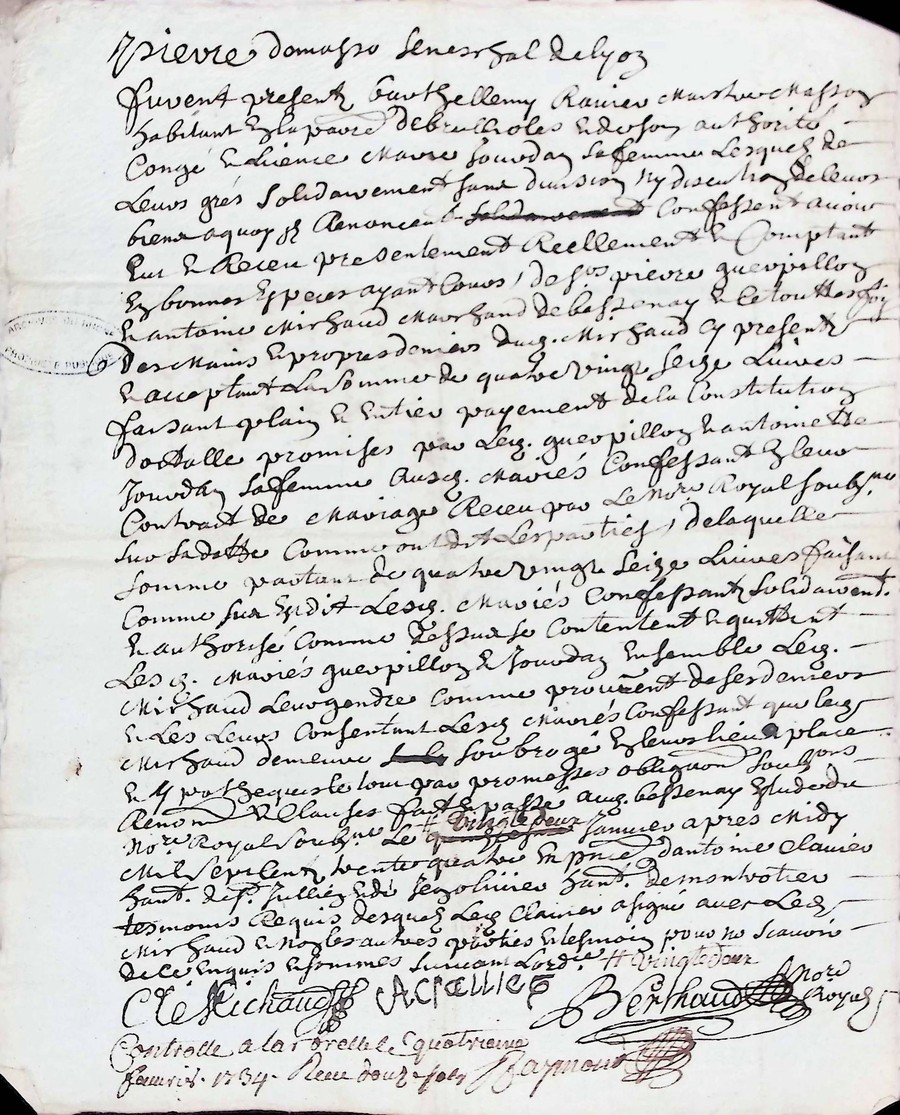 pierre de masso seneschal de lyon
furent presentz barthellemy Ravier Maistre Masson
habitant en la parre de brullioles et de son authorité
Congé et licence Marie Jourdan sa femme lesquelz de
leurs grés solidairement sans division ny discution de leurs
biens a quoy ilz renoncent solidairement Confessent avoir
Eut et Receu presentement Reellement et Comptant
En bonnes Especes ayant Cours de srs pierre guerpillon
Et antoine Michaud Marchand de bessenay et le tout
des Mains et propres deniers dud. Michaud Cy present
et acceptant la somme de quatre vingt seize Livres
faisant plain et Entier payement de la Constitution
dotalle promises par led. guerpillon et antoinette
Jourdan sa femme Ausd. Mariés Confessant En leur
Contract de Mariage Receu par le Nore Royal soubzne
sur sa dotte Comme ont dit les parties, de laquelle
somme partant de quatre vingt seize Livres faisant
Comme sus est dit lesd. Mariés Confessantz solidairent.
Et authorisé Comme dessus se Contentent et quittent
lesd. Mariés guerpillon et Jourdan Ensemble led.
Michaud leur gendre Comme provent de ses deniers
et les leurs Consentant lesd Mariés Confessant que led
Michaud demeure soubrogé En leurs lieu et place
et ypotheques le tout par promesses obligaons soubzons
Renons et Clauses fait et passé aud. bessenay Etude du
Nore Royal soubzne le vingt deux Janvier apres Midy
Mil sept cent trente quatre En pnce d'antoine Clavier
hant. de st. Jullien et de Jean olivier hant. de montrotier
tesmoins Requis desquelz led Clavier a signé avec led
Michaud et Non les autres parties et tesmoin pour ne scavoir
de ce Enquis et sommes suivant lordce # vingt deux
Michaud A Clavier Berthaud Nore
Royal
Controlle a larbrelle le quatrieme
fevrier 1734. Receu douze sols Raymond